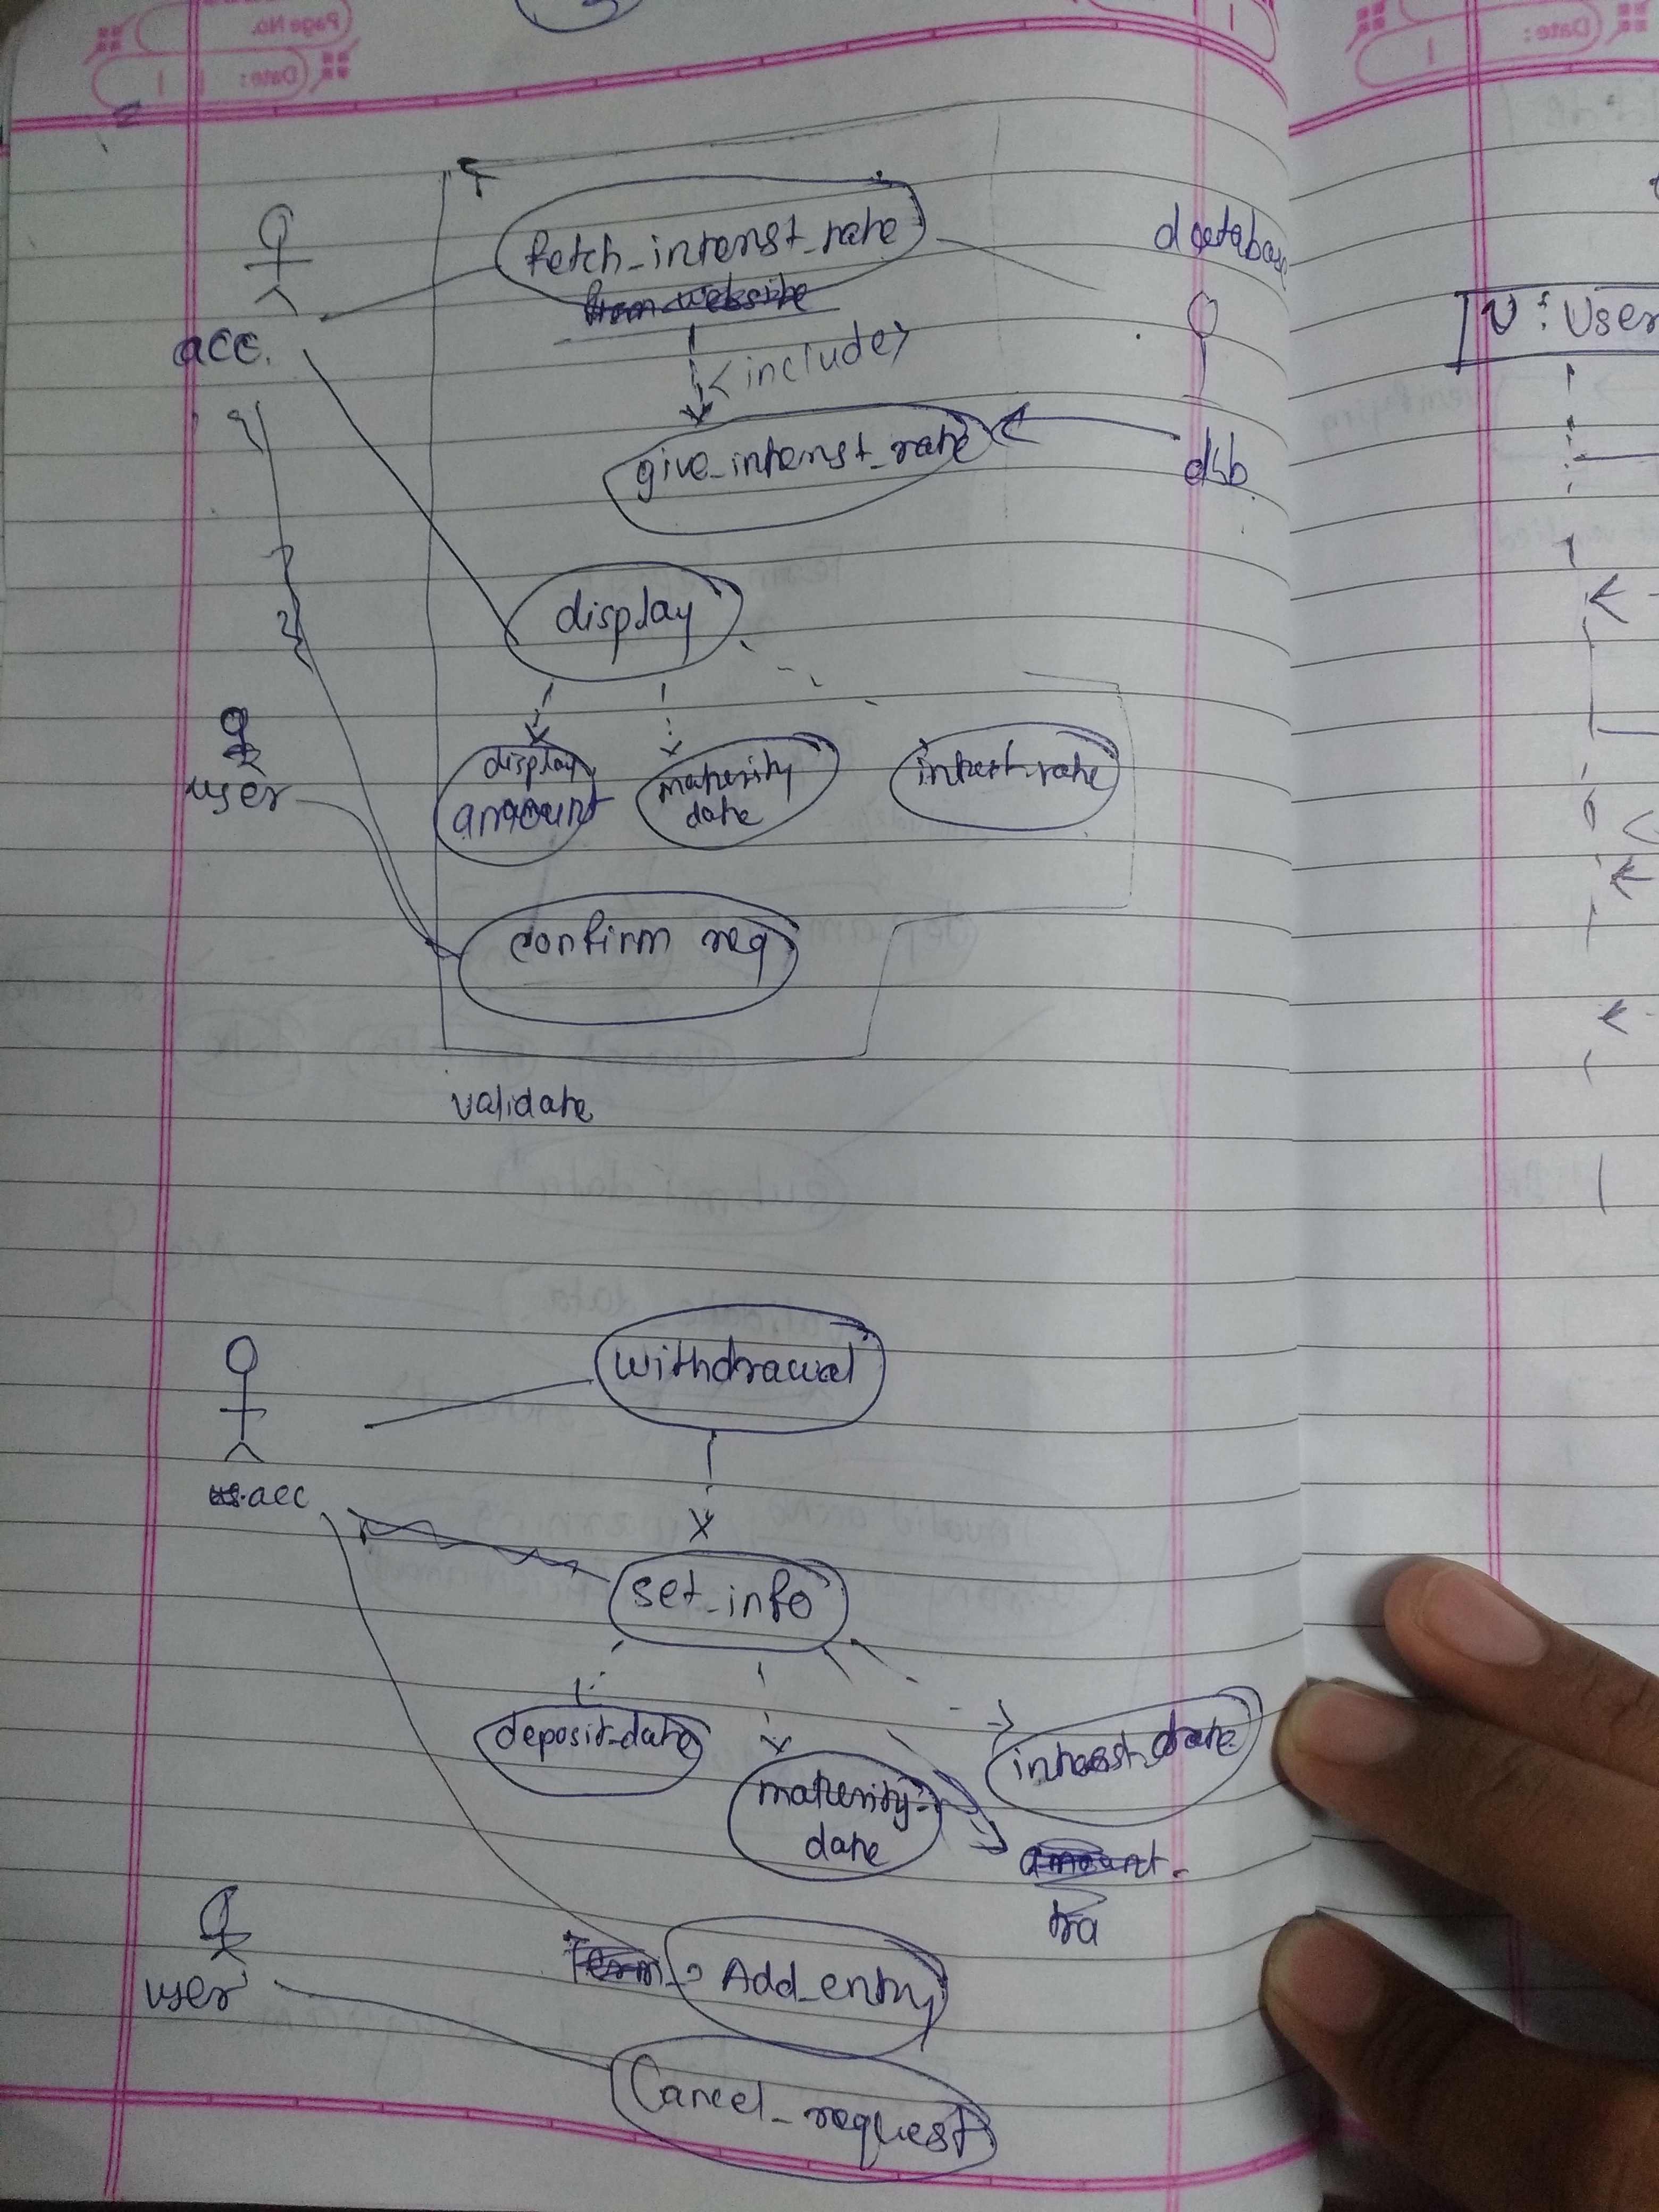 Page No.
Date:
Date:
fetch_interest_rate
from website
database
acc.
<include>
U : User
give_interest_rate
dsb
display
user
display
amount
maturity
date
interest-rate
confirm req
validate
withdrawal
acc
set_info
deposit-date
maturity-
date
interest_date
amount
tra
Add_entry
user
Cancel_request